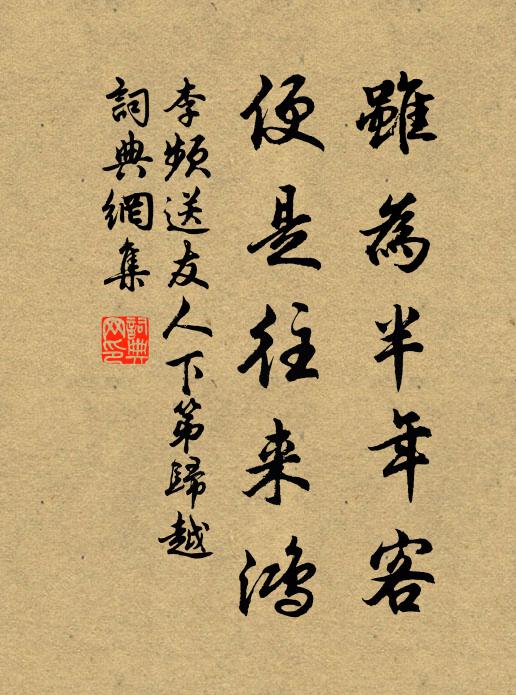 雖為半年客
便是往来鴻
李頻送友人下第歸越
詞典網集
詞典
网印